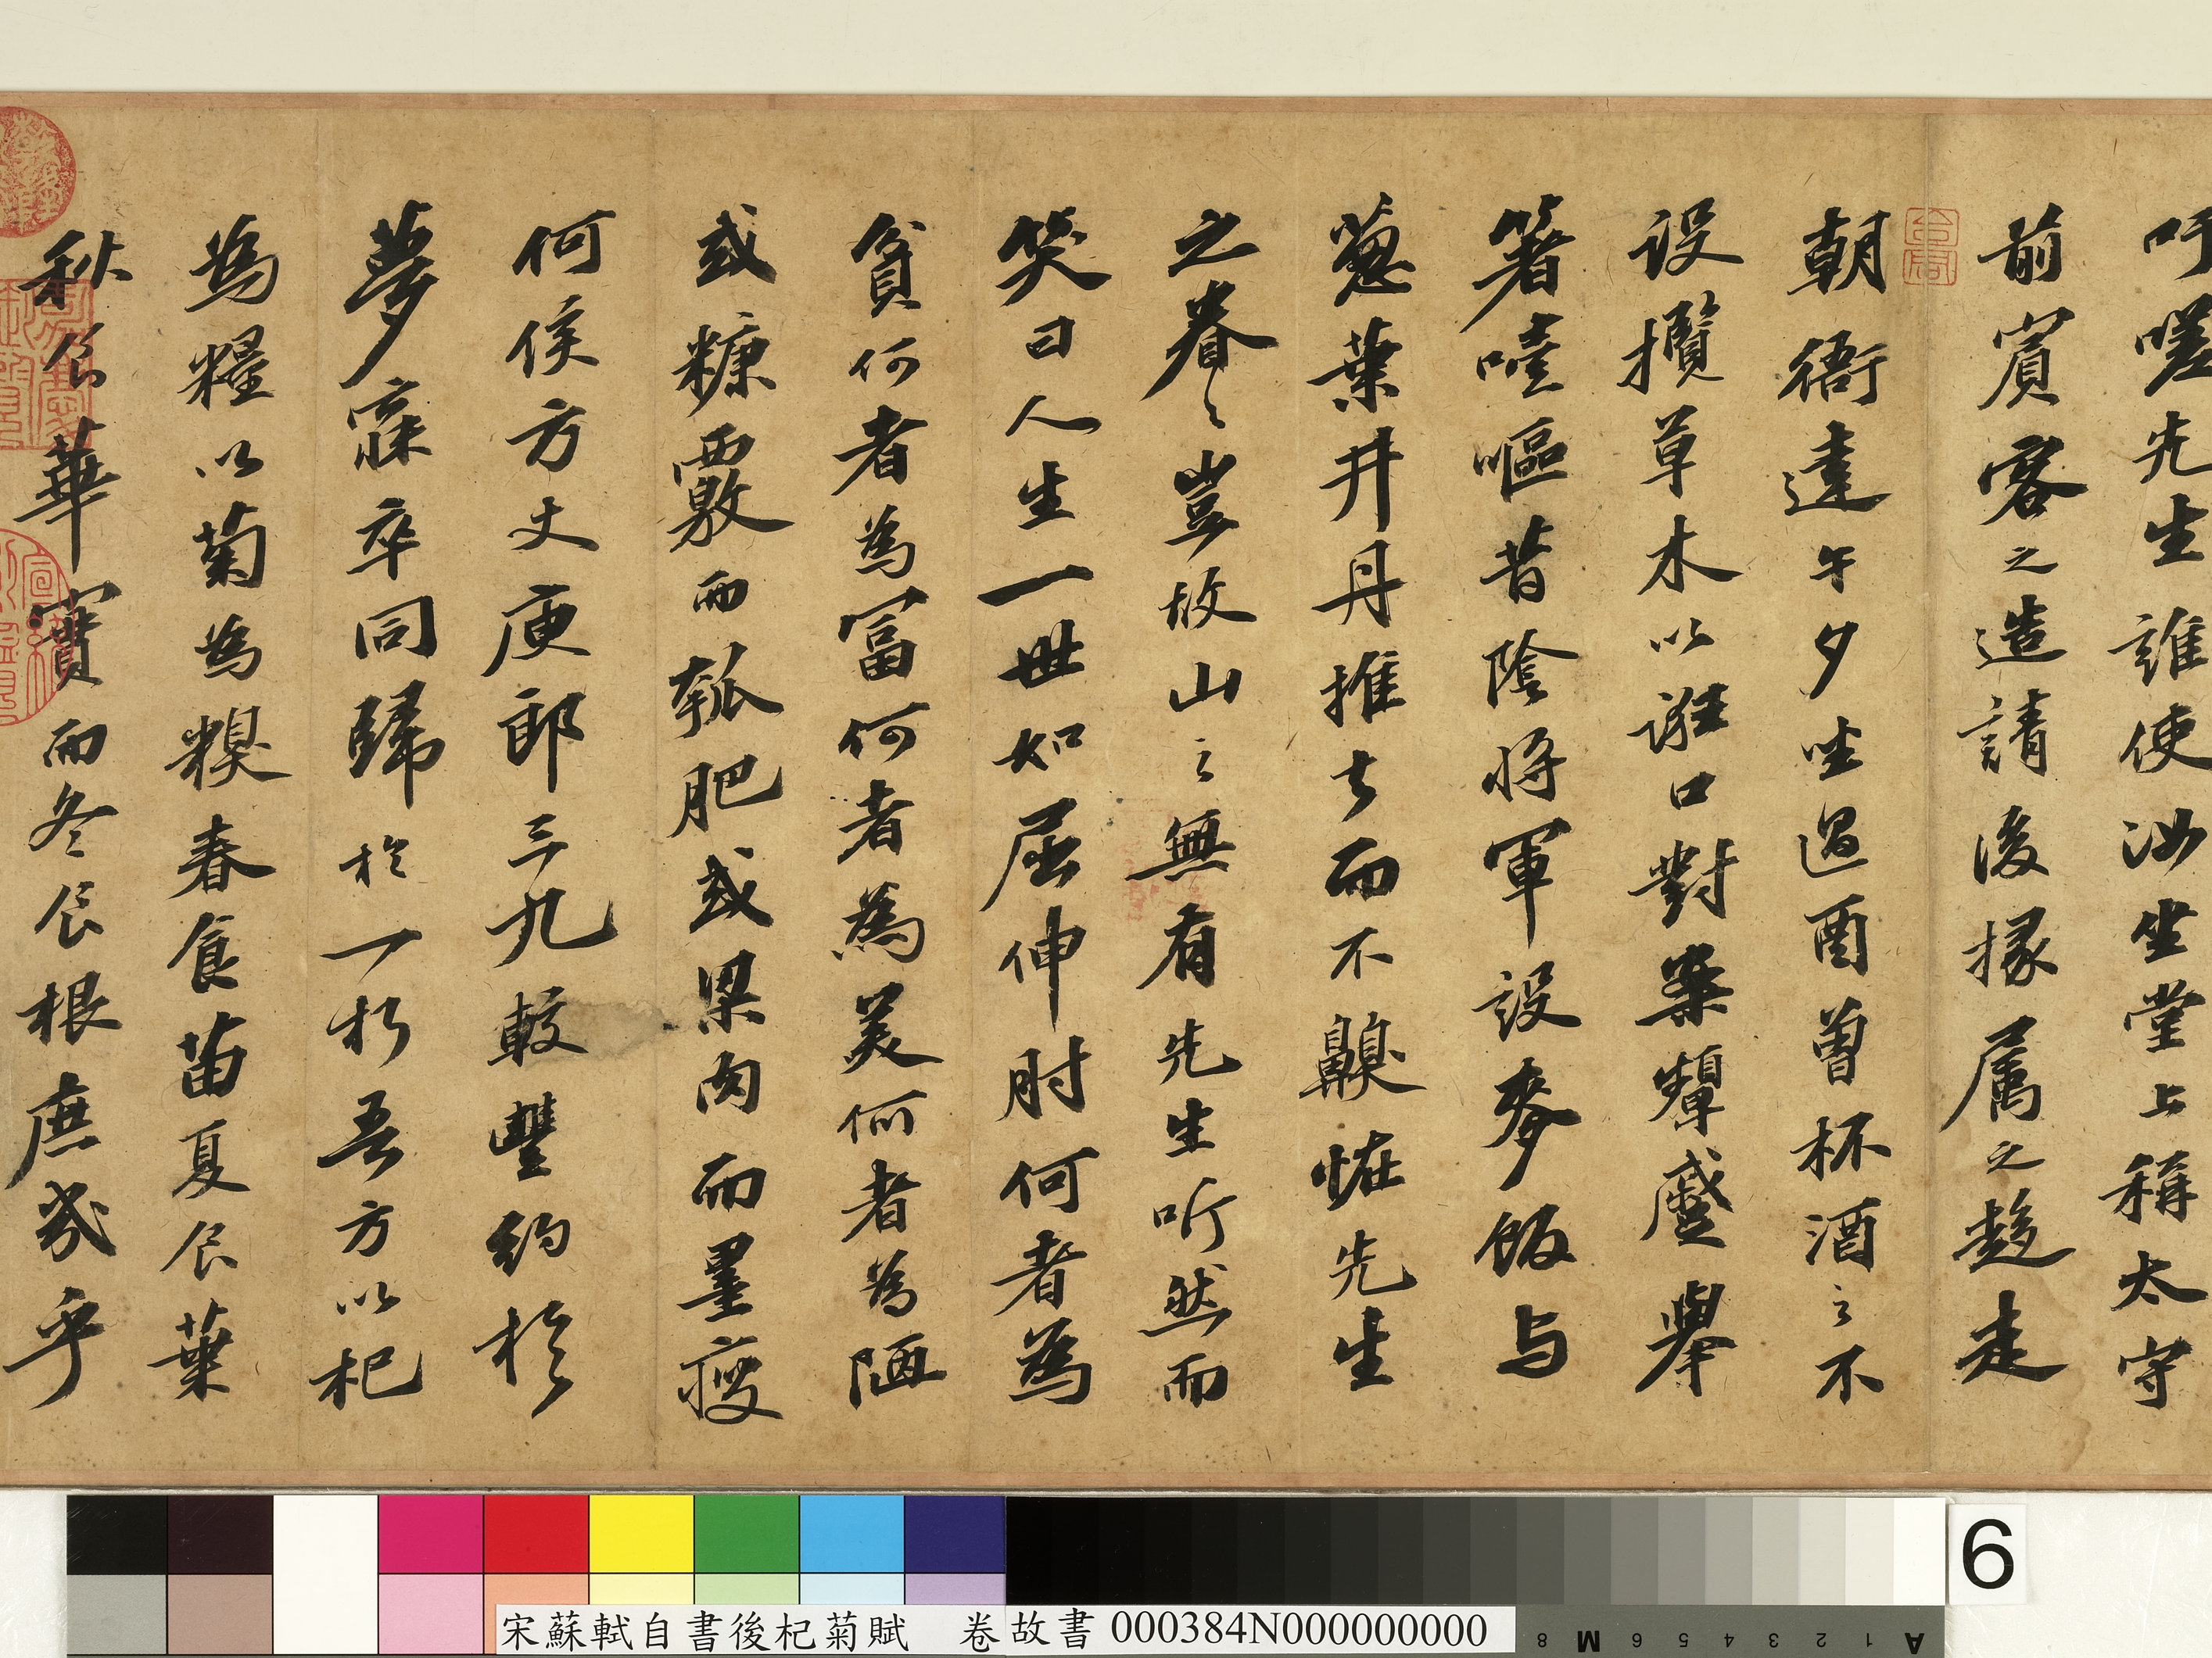 吁嗟先生誰使汝坐堂上稱太守
前賓客之造請後掾属之趍走
朝衙達午夕坐過酉曾杯酒之不
設攬草木以誑口對案顰蹙舉
箸噎嘔昔陰將軍設麥飯与
葱葉井丹推去而不齅怪先生
之眷〻豈故山之無有先生听然而
笑曰人生一世如屈伸肘何者為
貧何者為富何者為美何者為陋
或糠覈而瓠肥或梁肉而墨瘦
何侯方丈庾郎三九較豐約於
夢寐卒同歸於一朽吾方以杞
為糧以菊為糗春食苗夏食葉
秋食華實而冬食根庶幾乎
6
宋蘇軾自書後杞菊賦 卷 故書 000384N000000000
8 M 6 5 4 3 2 1 A